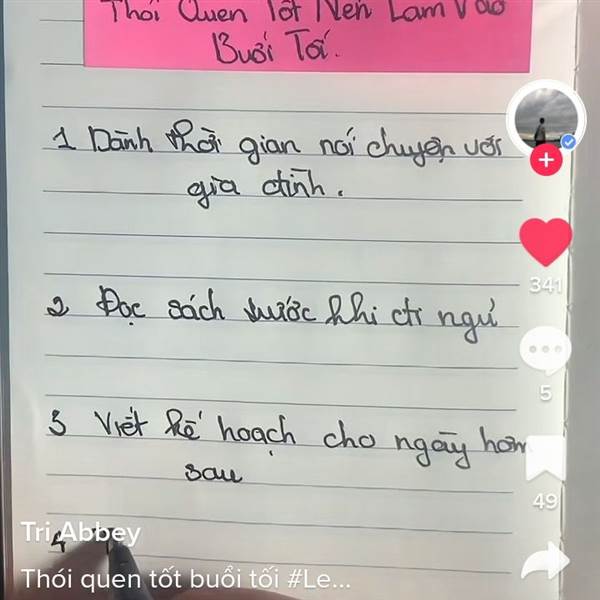 Thói Quen Tốt Nên Làm Vào
Buổi Tối.
1 Dành thời gian nói chuyện với
gia đình.
2 Đọc sách trước khi đi ngủ
3 Viết kế hoạch cho ngày hôm
sau
341
5
49
4
Tri Abbey
Thói quen tốt buổi tối #Le...